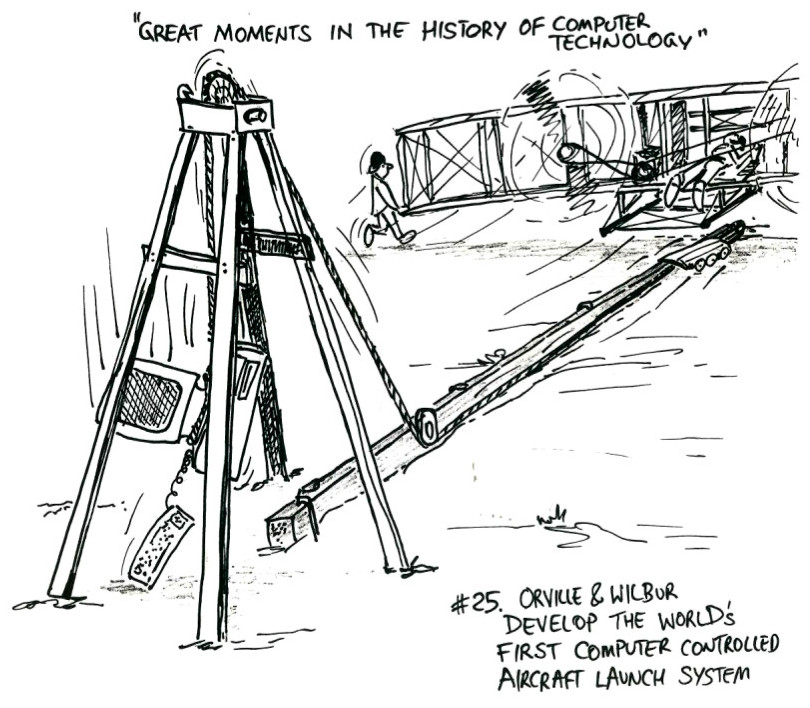 "GREAT MOMENTS IN THE HISTORY OF COMPUTER
TECHNOLOGY"
#25. ORVILLE & WILBUR
DEVELOP THE WORLD'S
FIRST COMPUTER CONTROLLED
AIRCRAFT LAUNCH SYSTEM